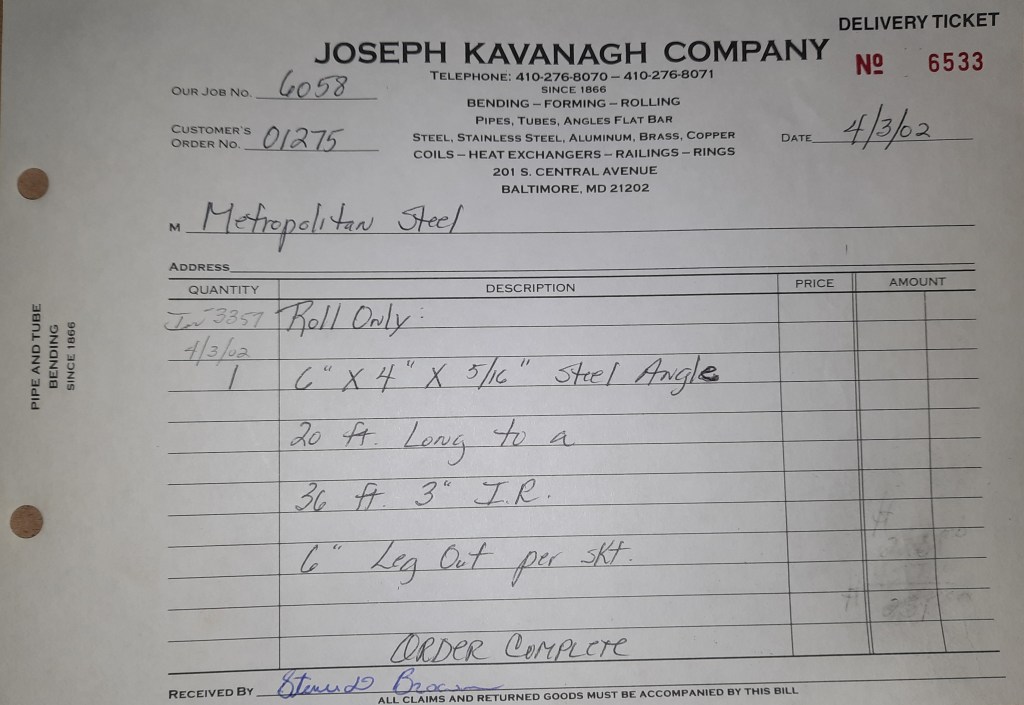 DELIVERY TICKET
JOSEPH KAVANAGH COMPANY
Nº 6533
TELEPHONE: 410-276-8070 – 410-276-8071
SINCE 1866
BENDING – FORMING – ROLLING
PIPES, TUBES, ANGLES FLAT BAR
STEEL, STAINLESS STEEL, ALUMINUM, BRASS, COPPER
COILS – HEAT EXCHANGERS – RAILINGS – RINGS
201 S. CENTRAL AVENUE
BALTIMORE, MD 21202
OUR JOB NO. 6058
CUSTOMER'S
ORDER NO. 01275
DATE 4/3/02
M Metropolitan Steel
ADDRESS
QUANTITY DESCRIPTION PRICE AMOUNT
3357 Roll Only:
4/3/02
1 6" X 4" X 5/16" Steel Angle
20 ft. Long to a
36 ft. 3" I.R.
6" Leg Out per skt.
ORDER COMPLETE
RECEIVED BY
ALL CLAIMS AND RETURNED GOODS MUST BE ACCOMPANIED BY THIS BILL
PIPE AND TUBE
BENDING
SINCE 1866